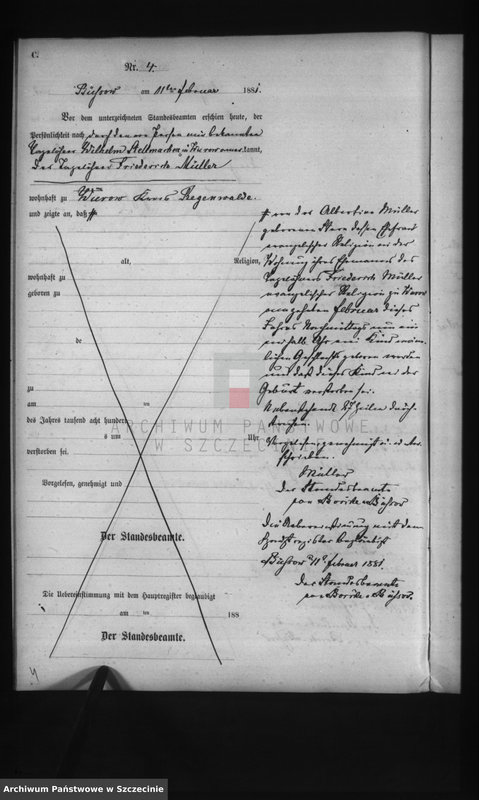 C.
Nr. 4.
Büssow am 11ten Februar 1881.
Vor dem unterzeichneten Standesbeamten erschien heute, der
Persönlichkeit nach durch den Person bekannten
Tagelöhner Wilhelm Stellmacher zu Wurow kannt,
Der Tagelöhner Friederich Müller
wohnhaft zu Wurow Kreis Regenwalde.
und zeigte an, daß
von der Albertine Müller
geborenen deßen Ehefrau
evangelischer Religion in der
Wohnung ihres Ehemannes des
Tagelöhners Friederich Müller
evangelischer Religion zu Wurow
am zehnten Februar dieses
Jahres Nachmittags um ein
halb Uhr ein Kind männ-
lichen Geschlechts geboren worden
und daß dieses Kind in der
Geburt verstorben sei.
Nebenstehende 17 Zeilen durch-
strichen.
Vorgelesen, genehmigt und unter-
schrieben.
Müller
Der Standesbeamte
von Borcke Büssow
Die Uebereinstimmung mit dem
Hauptregister beglaubigt
Büssow 11t Februar 1881.
Der Standesbeamte
von Borcke Büssow.
alt, Religion,
wohnhaft zu
geboren zu
de
zu
am ten
des Jahres tausend acht hundert
s um Uhr
verstorben sei.
Vorgelesen, genehmigt und
Der Standesbeamte.
Die Uebereinstimmung mit dem Hauptregister beglaubigt
am ten 188
Der Standesbeamte.
4
ARCHIWUM PAŃSTWOWE
W SZCZECINIE
Archiwum Państwowe w Szczecinie